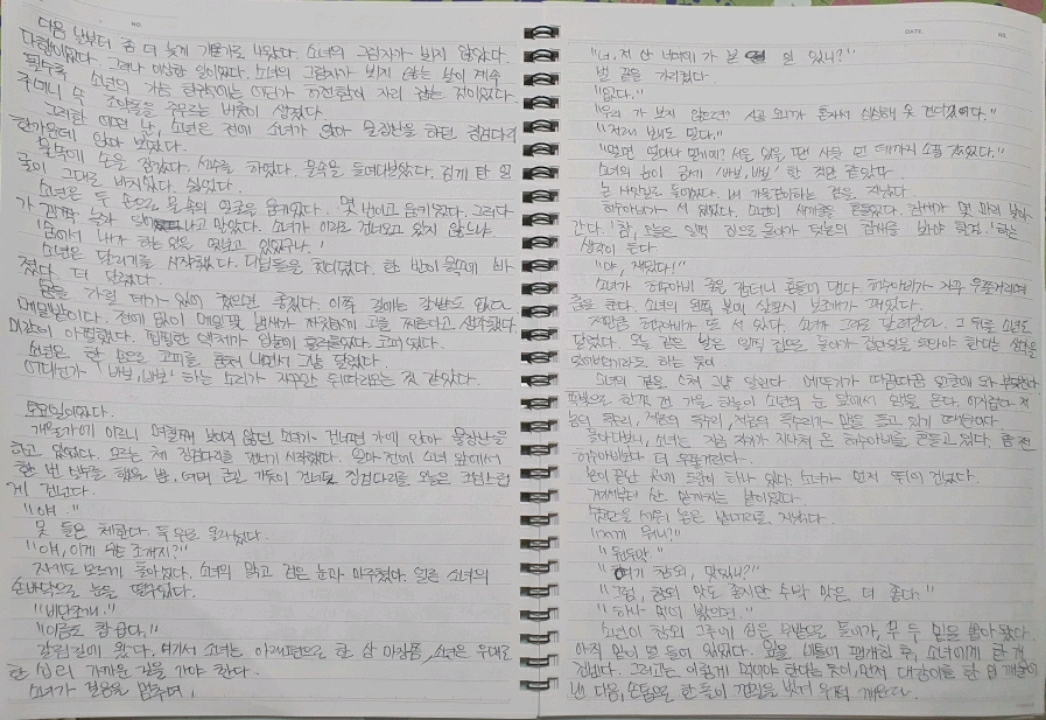 NO.
다음 날부터 좀 더 늦게 개울가로 나왔다. 소녀의 그림자가 뵈지 않았다.
다행이었다. 그러나 이상한 일이었다. 소녀의 그림자가 뵈지 않는 날이 계속
될수록 소년의 가슴 한구석에는 어딘가 허전함이 자리 잡는 것이었다.
주머니 속 조약돌을 주무르는 버릇이 생겼다.
그러한 어떤 날, 소년은 전에 소녀가 앉아 물장난을 하던 징검다리
한가운데에 앉아 보았다.
물속에 손을 잠갔다. 세수를 하였다. 물속을 들여다보았다. 검게 탄 얼
굴이 그대로 비치었다. 싫었다.
소년은 두 손으로 물 속의 얼굴을 움키었다. 몇 번이고 움키었다. 그러다
가 깜짝 놀라 일어나고 말았다. 소녀가 이리로 건너오고 있지 않느냐.
'숨어서 내가 하는 일을 엿보고 있었구나.'
소년은 달리기를 시작했다. 디딤돌을 헛디뎠다. 한 발이 물속에 빠
졌다. 더 달렸다.
몸을 가릴 데가 있어 줬으면 좋겠다. 이쪽 길에는 갈밭도 없다.
메밀밭이다. 전에 없이 메밀꽃 냄새가 짜릿하게 코를 찌른다고 생각했다.
미간이 아찔했다. 찝찔한 액체가 입술에 흘러들었다. 코피였다.
소년은 한 손으로 코피를 훔쳐 내면서 그냥 달렸다.
어디선가 '바보, 바보' 하는 소리가 자꾸만 뒤따라오는 것 같았다.
토요일이었다.
개울가에 이르니 며칠째 보이지 않던 소녀가 건너편 가에 앉아 물장난을
하고 있었다. 모르는 체 징검다리를 건너기 시작했다. 얼마 전에 소녀 앞에서
한 번 실수를 했을 뿐, 여태 큰길 가듯이 건너던 징검다리를 오늘은 조심스럽
게 건넌다.
"얘."
못 들은 체한다. 둑 위로 올라섰다.
"얘, 이게 무슨 조개지?"
자기도 모르게 돌아섰다. 소녀의 맑고 검은 눈과 마주쳤다. 얼른 소녀의
손바닥으로 눈을 떨구었다.
"비단조개."
"이름도 참 곱다."
갈림길에 왔다. 여기서 소녀는 아래편으로 한 삼 마장쯤, 소년은 우대로
한 십 리 가까운 길을 가야 한다.
소녀가 걸음을 멈추며,
DATE. NO.
"너, 저 산 너머에 가 본 일 있니?"
벌 끝을 가리켰다.
"없다."
"우리 가 보지 않으련? 시골 오니까 혼자서 심심해 못 견디겠다."
"저래 봬도 멀다."
"멀면 얼마나 멀기에? 서울 있을 땐 사뭇 먼 데까지 소풍 갔었다."
소녀의 눈이 금세 '바보, 바보' 할 것만 같았다.
논 사잇길로 들어섰다. 벼 가을걷이하는 곁을 지났다.
허수아비가 서 있었다. 소년이 새끼줄을 흔들었다. 참새가 몇 마리 날아
간다. '참, 오늘은 일찍 집으로 돌아가 텃논의 참새를 봐야 할걸.' 하는
생각이 든다.
"야, 재밌다!"
소녀가 허수아비 줄을 잡더니 흔들어 댄다. 허수아비가 자꾸 우쭐거리며
춤을 춘다. 소녀의 왼쪽 볼에 살포시 보조개가 패었다.
저만큼 허수아비가 또 서 있다. 소녀가 그리로 달려간다. 그 뒤를 소년도
달렸다. 오늘 같은 날은 일찍 집으로 돌아가 집안일을 도와야 한다는 생각을
잊어버리기라도 하는 듯이
소녀의 곁을 스쳐 그냥 달린다. 메뚜기가 따끔따끔 얼굴에 와 부딪친다.
쪽빛으로 한껏 갠 가을 하늘이 소년의 눈 앞에서 맴을 돈다. 어지럽다. 저
놈의 독수리, 저놈의 독수리, 저놈의 독수리가 맴을 돌고 있기 때문이다.
돌아다보니, 소녀는 지금 자기가 지나쳐 온 허수아비를 흔들고 있다. 좀 전
허수아비보다 더 우쭐거린다.
논이 끝난 곳에 도랑이 하나 있다. 소녀가 먼저 뛰어 건넜다.
거기서부터 산 밑까지는 밭이었다.
수숫단을 세워 놓은 밭머리를 지났다.
"저게 뭐니?"
"원두막."
"여기 참외, 맛있니?"
"그럼, 참외 맛도 좋지만 수박 맛은 더 좋다."
"하나 먹어 봤으면."
소년이 참외 그루에 심은 무밭으로 들어가, 무 두 밑을 뽑아 왔다.
아직 밑이 덜 들어 있었다. 잎을 비틀어 팽개친 후, 소녀에게 한 개
건넨다. 그러고는 이렇게 먹어야 한다는 듯이, 먼저 대강이를 한 입 베물어
낸 다음, 손톱으로 한 돌이 껍질을 벗겨 우쩍 깨문다.